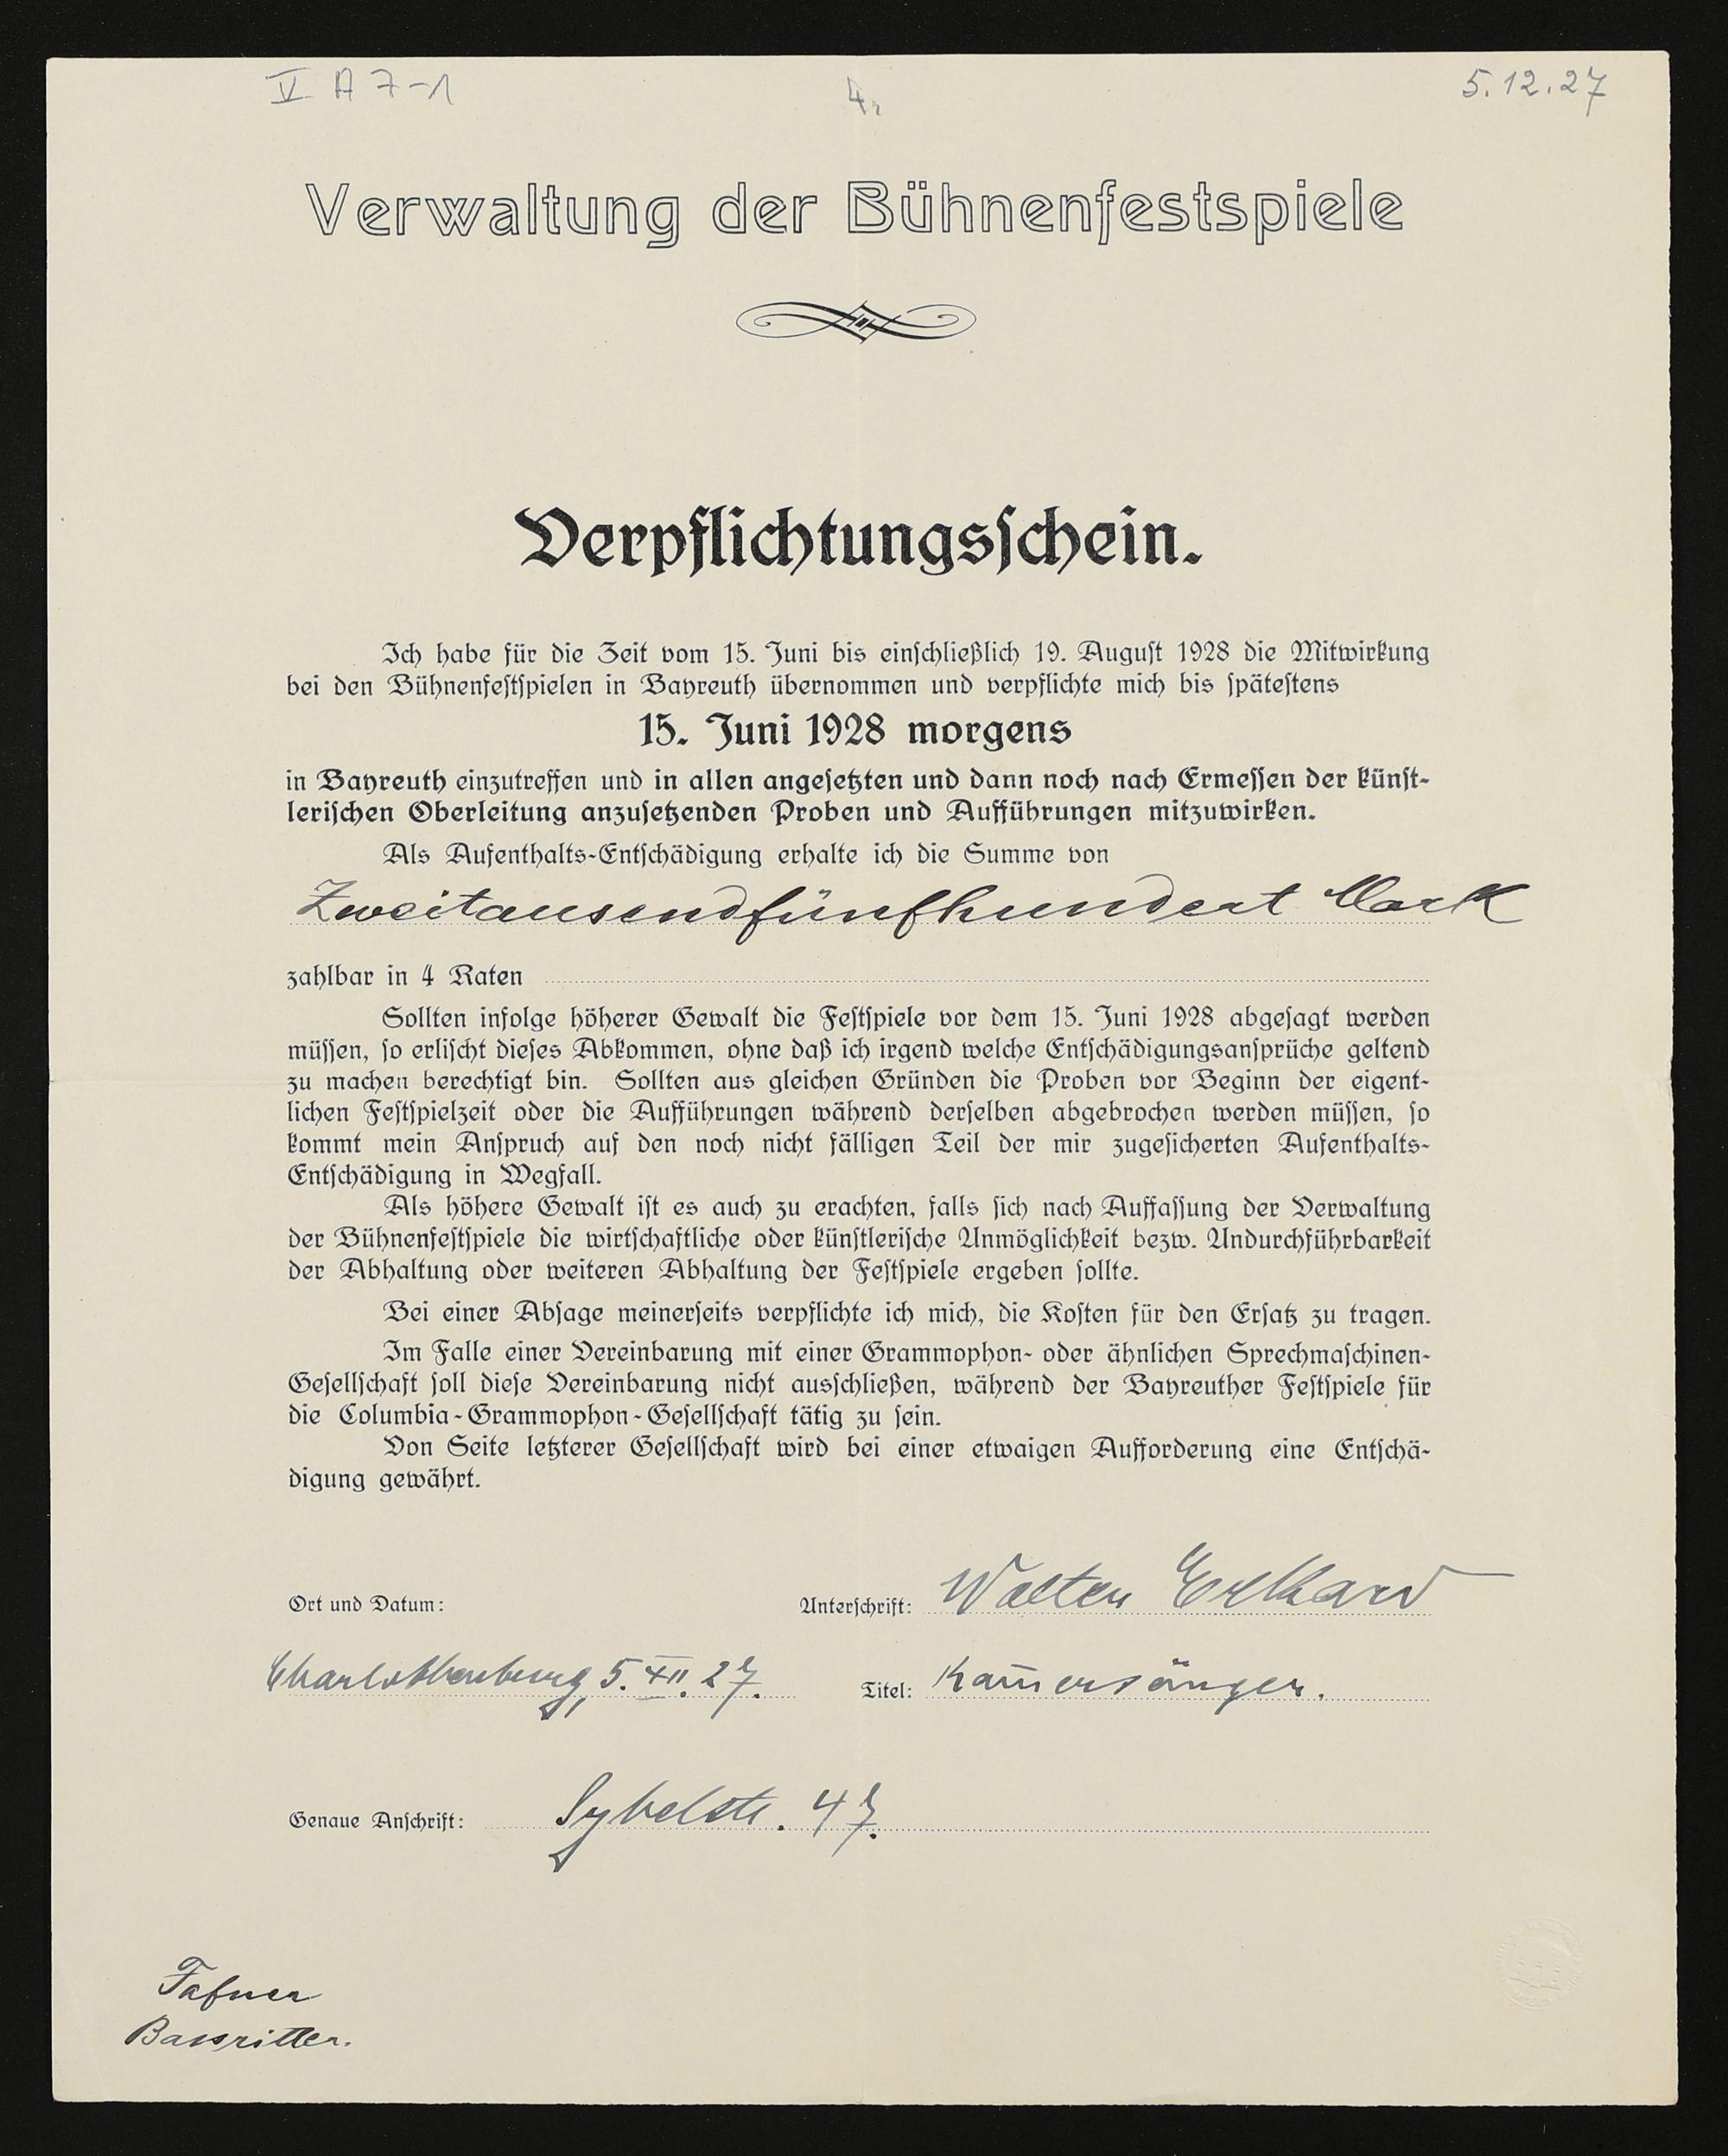 V A 7-1
4.
5.12.27
Verwaltung der Bühnenfestspiele
Verpflichtungsschein.
Ich habe für die Zeit vom 15. Juni bis einschließlich 19. August 1928 die Mitwirkung
bei den Bühnenfestspielen in Bayreuth übernommen und verpflichte mich bis spätestens
15. Juni 1928 morgens
in Bayreuth einzutreffen und in allen angesetzten und dann noch nach Ermessen der künst-
lerischen Oberleitung anzusetzenden Proben und Aufführungen mitzuwirken.
Als Aufenthalts-Entschädigung erhalte ich die Summe von
Zweitausendfünfhundert Mark
zahlbar in 4 Raten
Sollten infolge höherer Gewalt die Festspiele vor dem 15. Juni 1928 abgesagt werden
müssen, so erlischt dieses Abkommen, ohne daß ich irgend welche Entschädigungsansprüche geltend
zu machen berechtigt bin. Sollten aus gleichen Gründen die Proben vor Beginn der eigent-
lichen Festspielzeit oder die Aufführungen während derselben abgebrochen werden müssen, so
kommt mein Anspruch auf den noch nicht fälligen Teil der mir zugesicherten Aufenthalts-
Entschädigung in Wegfall.
Als höhere Gewalt ist es auch zu erachten, falls sich nach Auffassung der Verwaltung
der Bühnenfestspiele die wirtschaftliche oder künstlerische Unmöglichkeit bezw. Undurchführbarkeit
der Abhaltung oder weiteren Abhaltung der Festspiele ergeben sollte.
Bei einer Absage meinerseits verpflichte ich mich, die Kosten für den Ersatz zu tragen.
Im Falle einer Vereinbarung mit einer Grammophon- oder ähnlichen Sprechmaschinen-
Gesellschaft soll diese Vereinbarung nicht ausschließen, während der Bayreuther Festspiele für
die Columbia-Grammophon-Gesellschaft tätig zu sein.
Von Seite letzterer Gesellschaft wird bei einer etwaigen Aufforderung eine Entschä-
digung gewährt.
Ort und Datum:
Unterschrift: Walter Eckhard
Charlottenburg, 5. XII. 27.
Titel: Kam̄ersänger.
Genaue Anschrift: Sybelstr. 47.
Fafner
Bassritter.